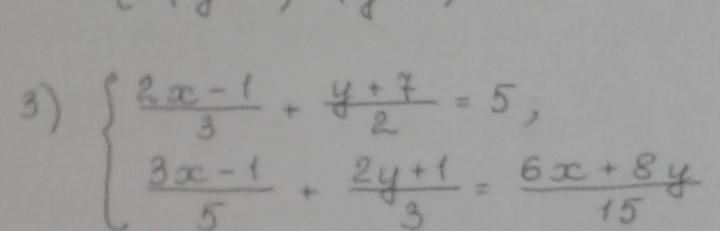 3) { (2x - 1)/3 + (y + 7)/2 = 5;
(3x - 1)/5 + (2y + 1)/3 = (6x + 8y)/15